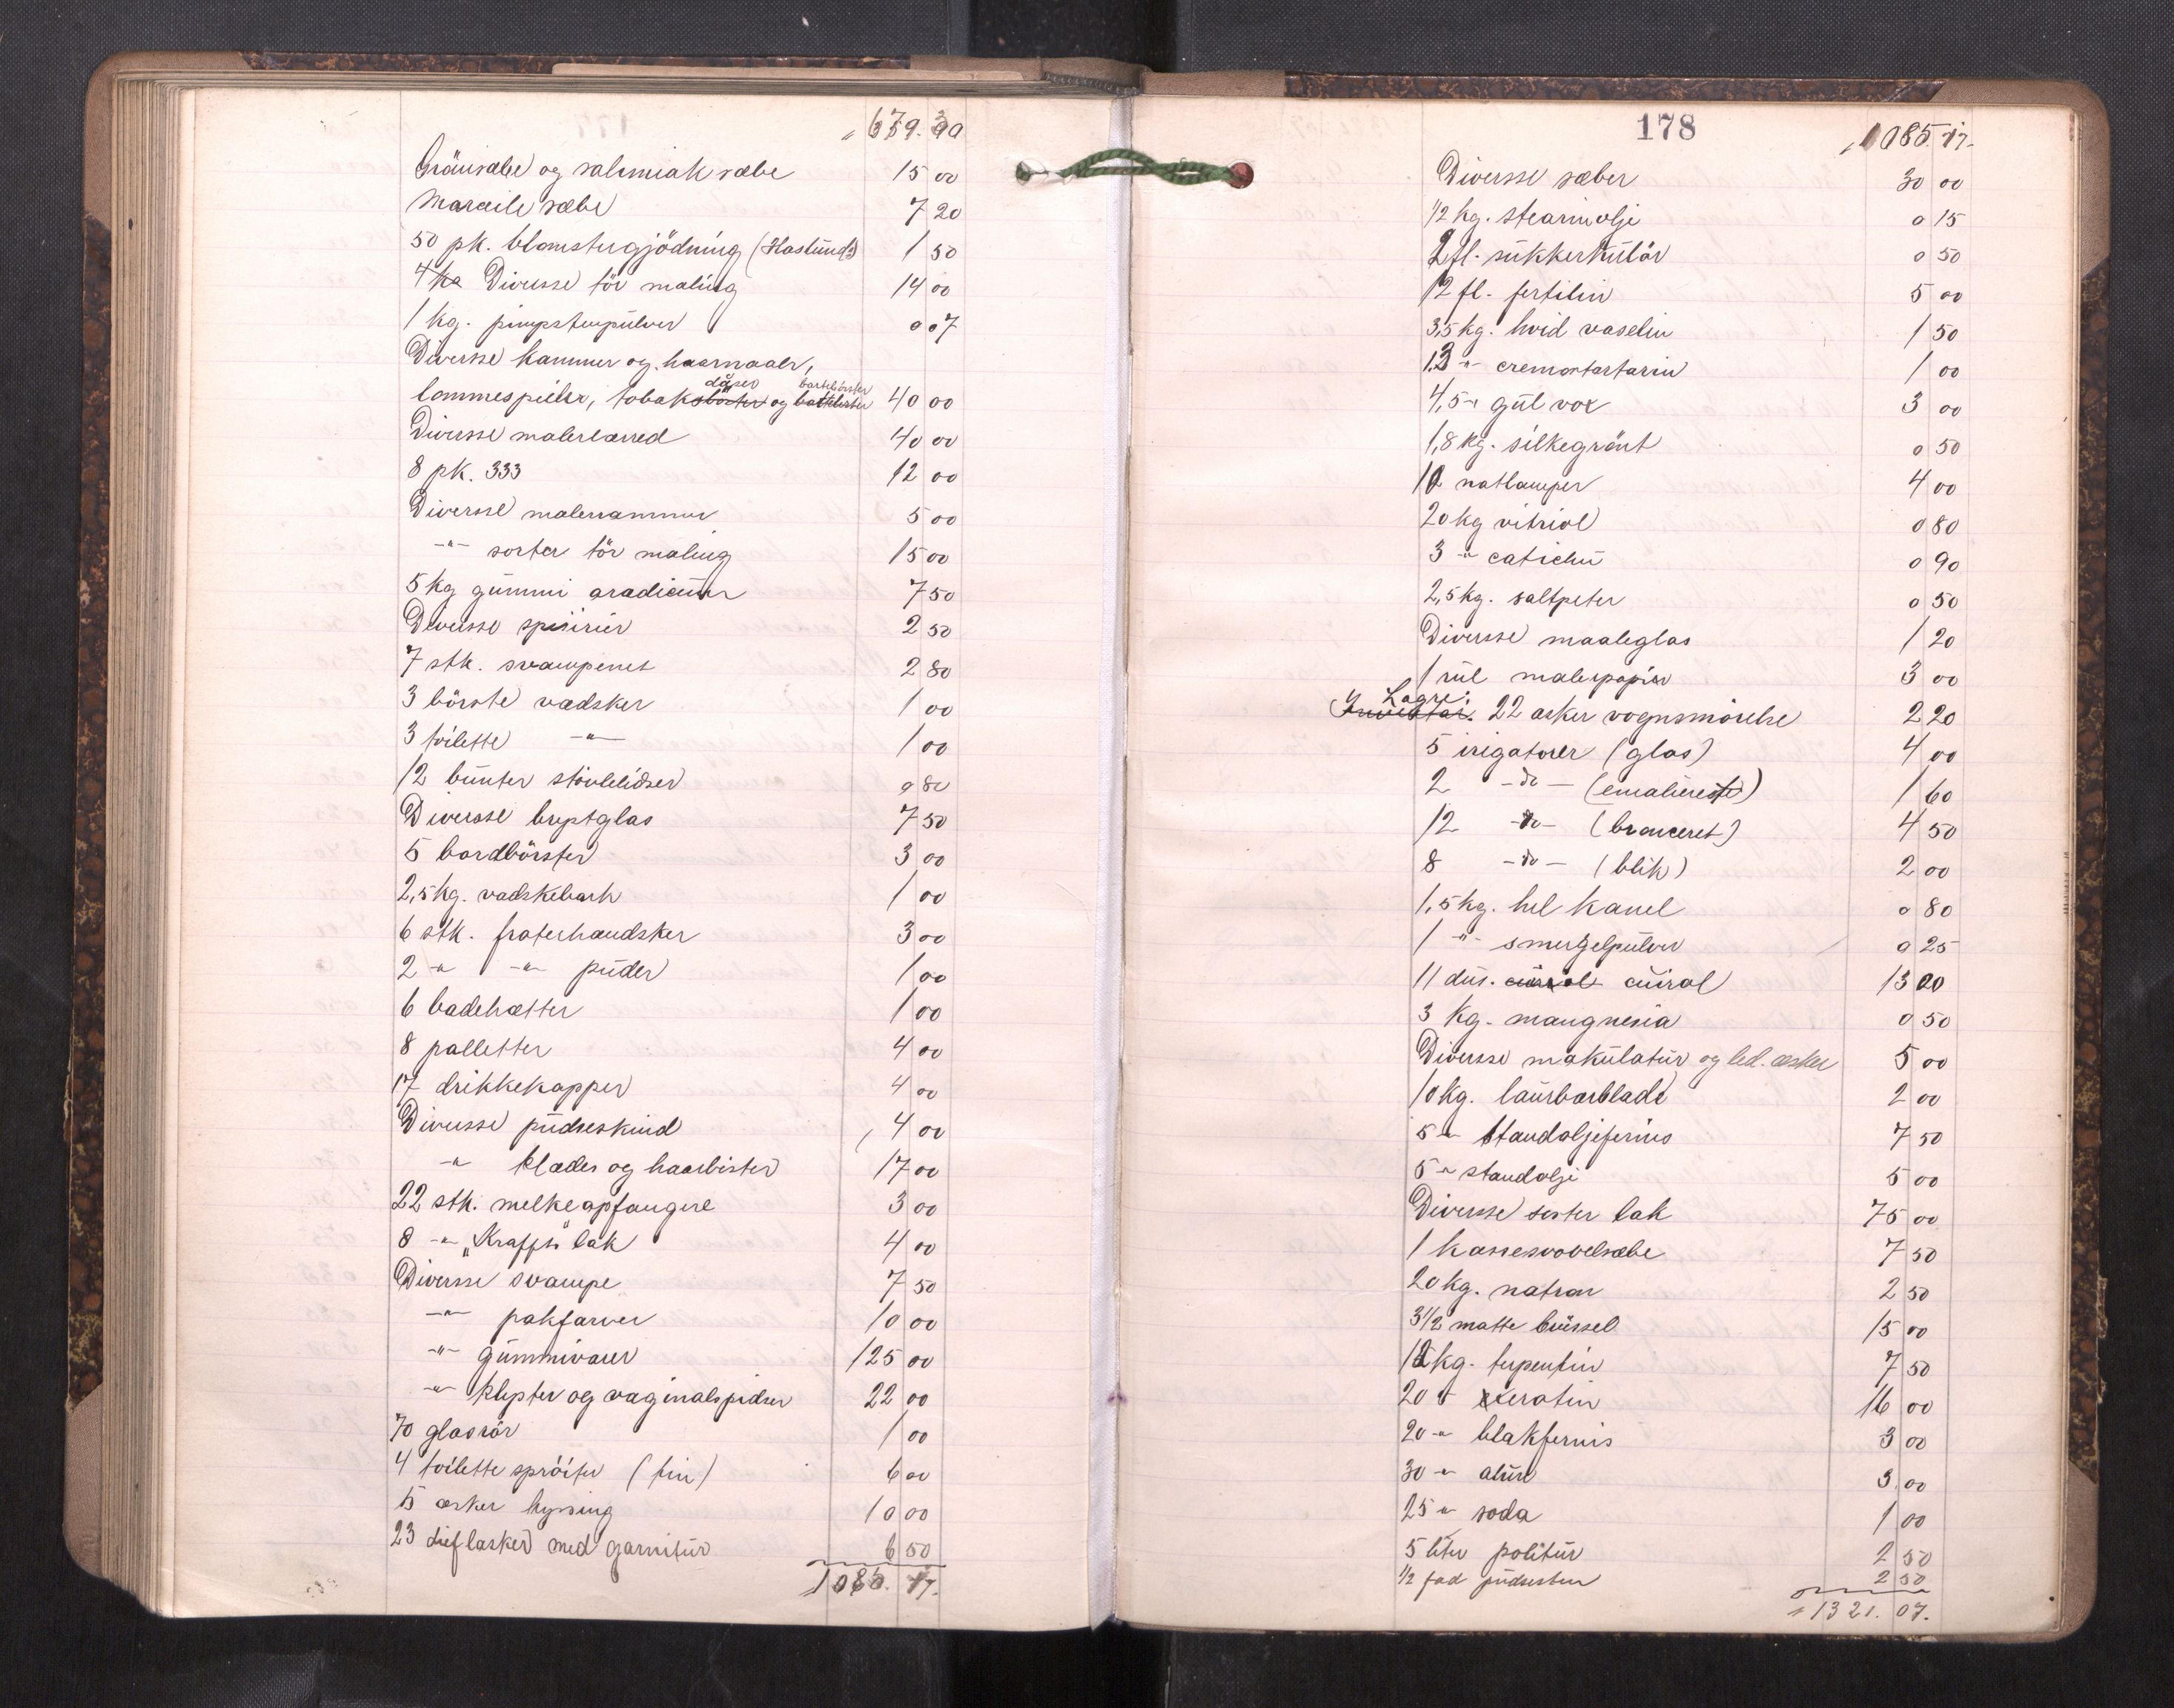 679. 30
Grönsæbe og salmiak sæbe 15 00
Marceile sæbe 7 20
50 pk. blomstergjödning (Haslunds) 1 50
Diverse tör maling 14 00
1 kg. pimpstenpulver 0 07
Diverse kammer og haarnaaler,
daaser bartebörster
lommespeiler, tobaks og 40 00
Diverse malerlærred 40 00
8 pk. 333 12 00
Diverse malerrammer 5 00
-"- sorter tör maling 15 00
5 kg gummi aradicum 7 50
Diverse 2 50
7 stk. svampenet 2 80
3 börste vadsker 1 00
3 toilette -"- 1 00
12 bunter stövlelidser 0 80
Diverse brystglas 7 50
5 bordbörster 3 00
2,5 kg. vadskebark 1 00
6 stk. froterhandsker 3 00
2 -"- -"- puder 1 00
6 badehætter 1 00
8 palletter 4 00
17 drikkekopper 4 00
Diverse pudseskind 4 00
-"- klæder og haarbörster 17 00
22 stk. melkeopfangere 3 00
8 -"- „Krafft" lak 4 00
Diverse svampe 7 50
-"- pakfarver 10 00
-"- gummivarer 125 00
-"- klyster og vaginalspidser 22 00
70 glasrör 1 00
4 toilette spröiter (tin) 6 00
5 æsker hyssing 10 00
23 dieflasker med garnitur 6 50
1085. 17.
178
1085. 17.
Diverse sæber 30 00
1/2 kg. stearinolje 0 15
2 fl. sukkerkulör 0 50
12 fl. fertilin 5 00
3,5 kg. hvid vaselin 1 50
1,3 -"- cremortartarin 1 00
4,5 -"- gul vox 3 00
1,8 kg. silkegrönt 0 50
10 natlamper 4 00
20 kg vitriol 0 80
3 -"- catichu 0 90
2,5 kg. saltpeter 0 50
Diverse maaleglas 1 20
1 rul malerpapir 3 00
Lagre:
22 æsker vognsmörelse 2 20
5 irigatorer (glas) 4 00
2 -do- (emalierete) 1 60
12 -do- (bronceret) 4 50
8 -do- (blik) 2 00
1,5 kg. hel kanel 0 80
1 -"- smergelpulver 0 25
11 dus. cuirol 13 20
3 kg. mangnesia 0 50
Diverse makulatur og led. æsker 5 00
10 kg. laurbærblade 2 00
5 -"- standoljefernis 7 50
5 -"- standolje 5 00
Diverse sorter lak 75 00
1 kasse svovelsæbe 7 50
20 kg. natron 2 50
3 1/2 matte brüssel 15 00
12 kg. terpentin 7 50
20 -"- xeratin 16 00
20 -"- blakfernis 3 00
30 -"- alun 3 00
25 -"- soda 1 00
5 liter politur 2 50
1/2 fad pudsesten 2 50
1321. 07.